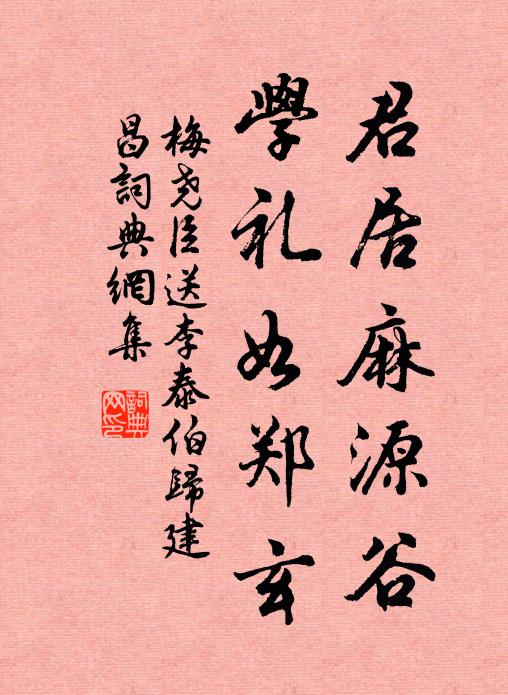 君居麻源谷
學礼如郑玄
梅尧臣送李泰伯歸建
昌詞典網集
詞典网印